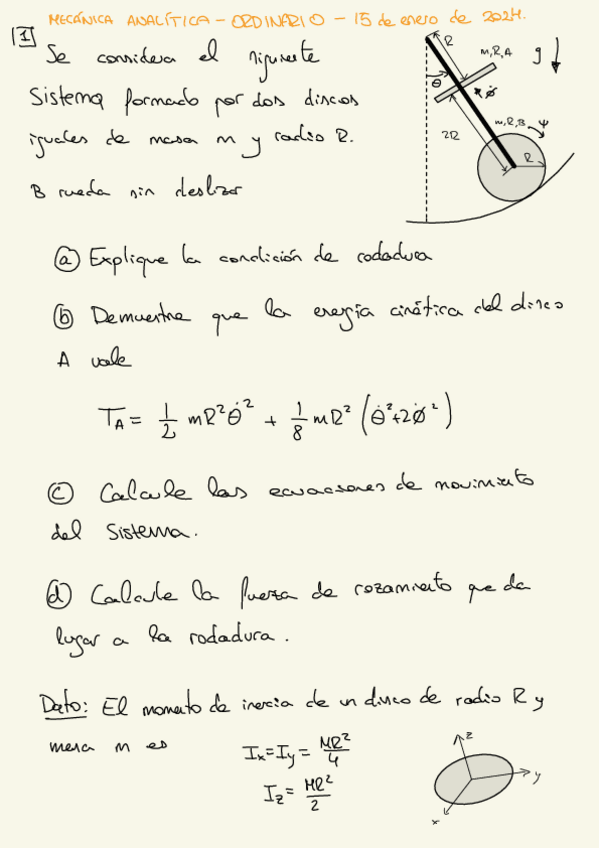 MECÁNICA ANALÍTICA - ORDINARIO - 15 de enero de 2024.
1 Se considera el siguiente
Sistema formado por dos discos
iguales de masa m y radio R.
B rueda sin deslizar
R
m,R,A
g
θ
φ̇
m,R,B
ψ
2R
R
a) Explique la condición de rodadura
b) Demuestre que la energía cinética del disco
A vale
T_A = 1/2 mR²θ̇² + 1/8 mR² (θ̇²+2φ̇²)
c) Calcule las ecuaciones de movimiento
del Sistema.
d) Calcule la fuerza de rozamiento que da
lugar a la rodadura.
Dato: El momento de inercia de un disco de radio R y
masa m es
I_x = I_y = MR²/4
I_z = MR²/2
z
y
x